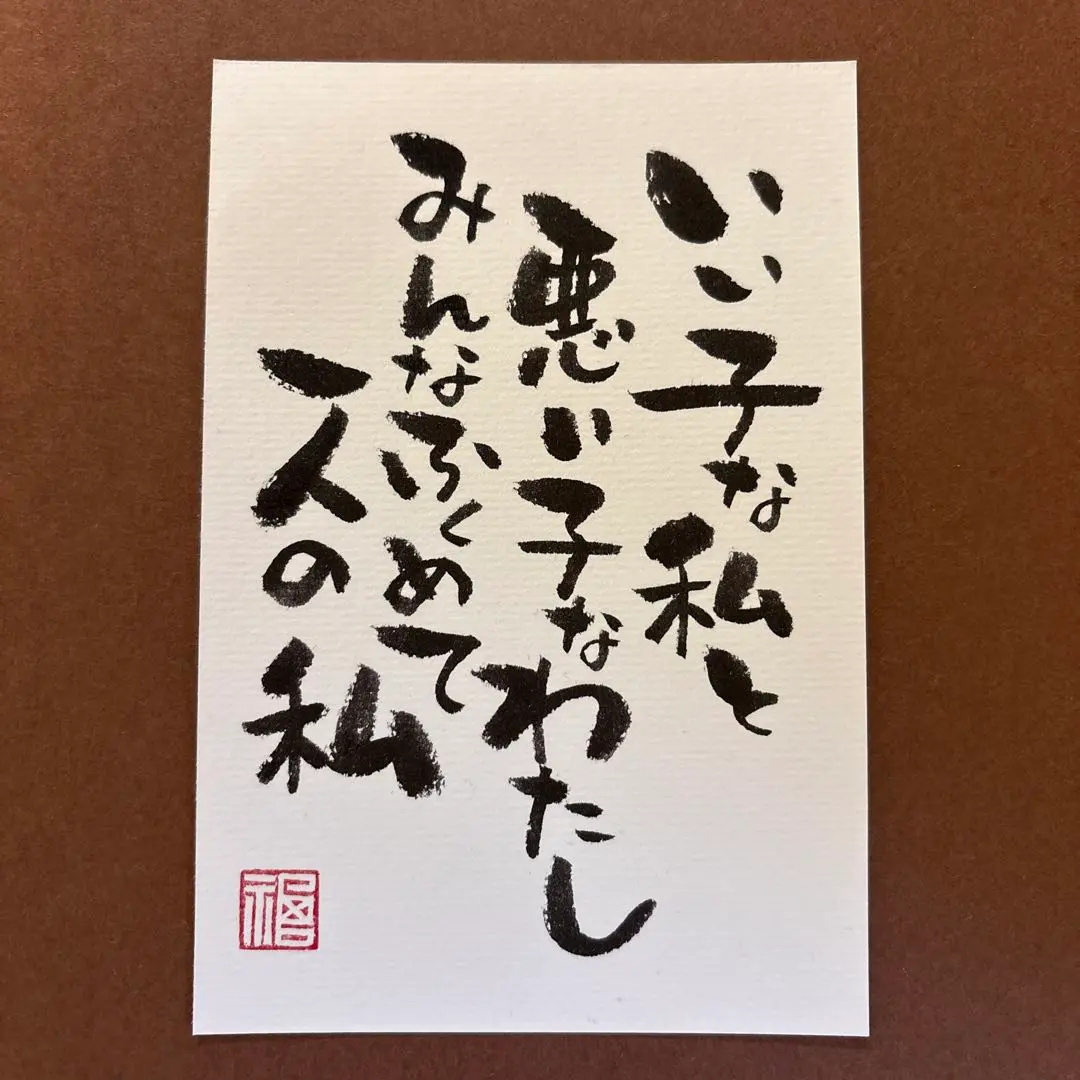 いい子な私と
悪い子なわたし
みんなふくめて
一人の私
福